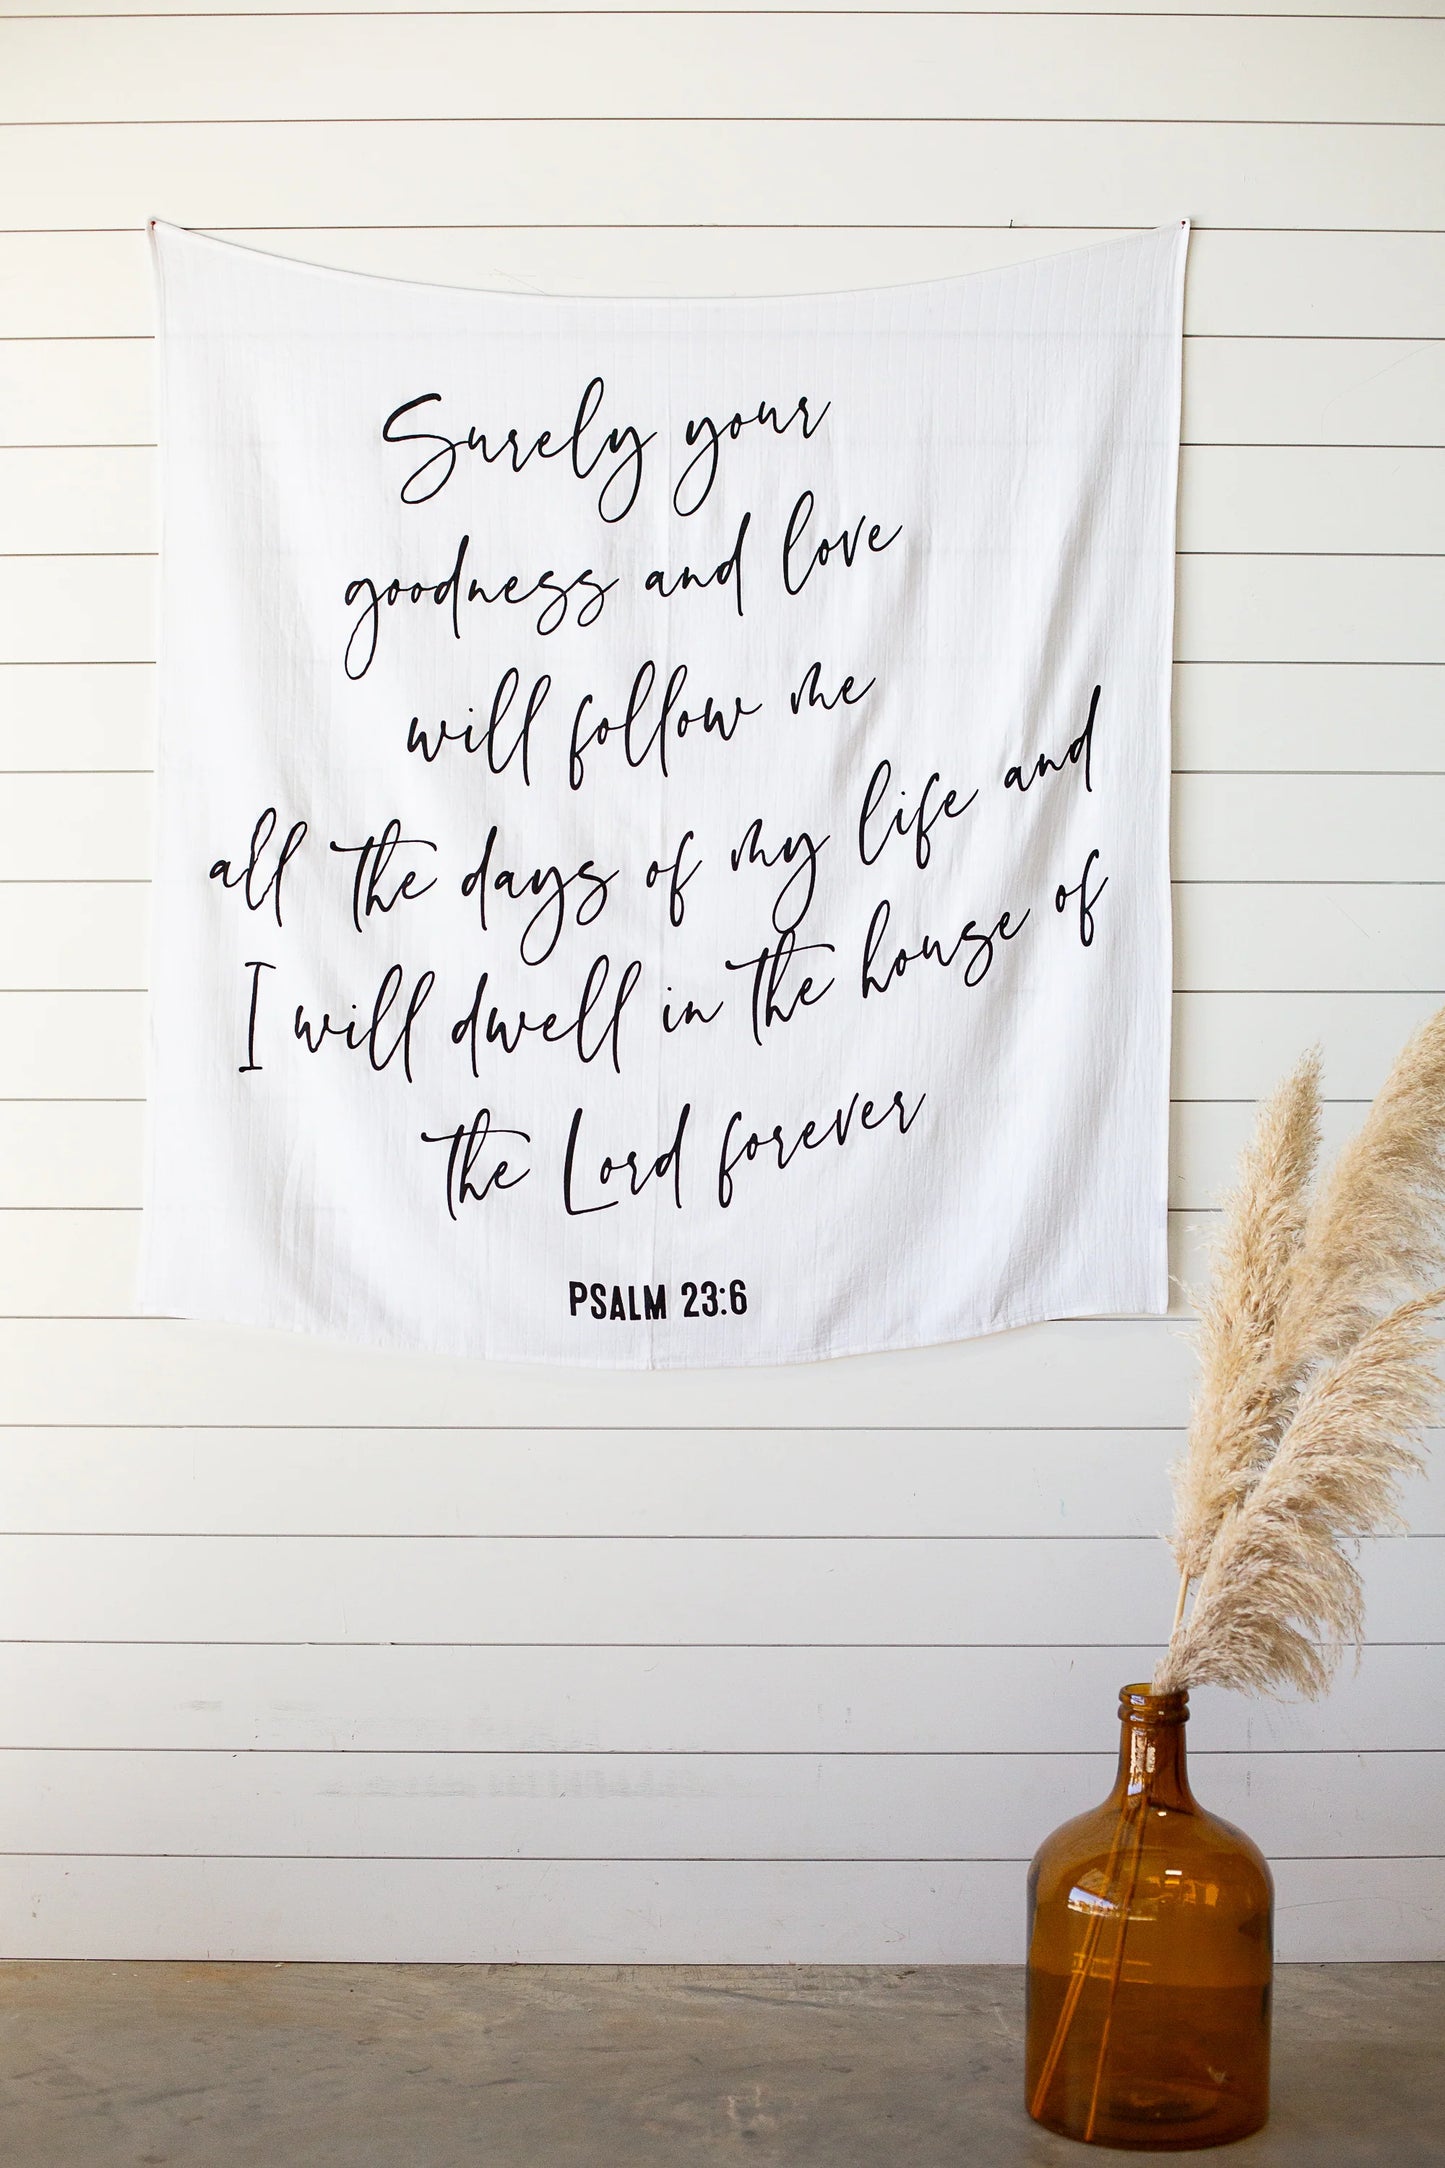 Surely your
goodness and love
will follow me
all the days of my life and
I will dwell in the house of
the Lord forever
PSALM 23:6